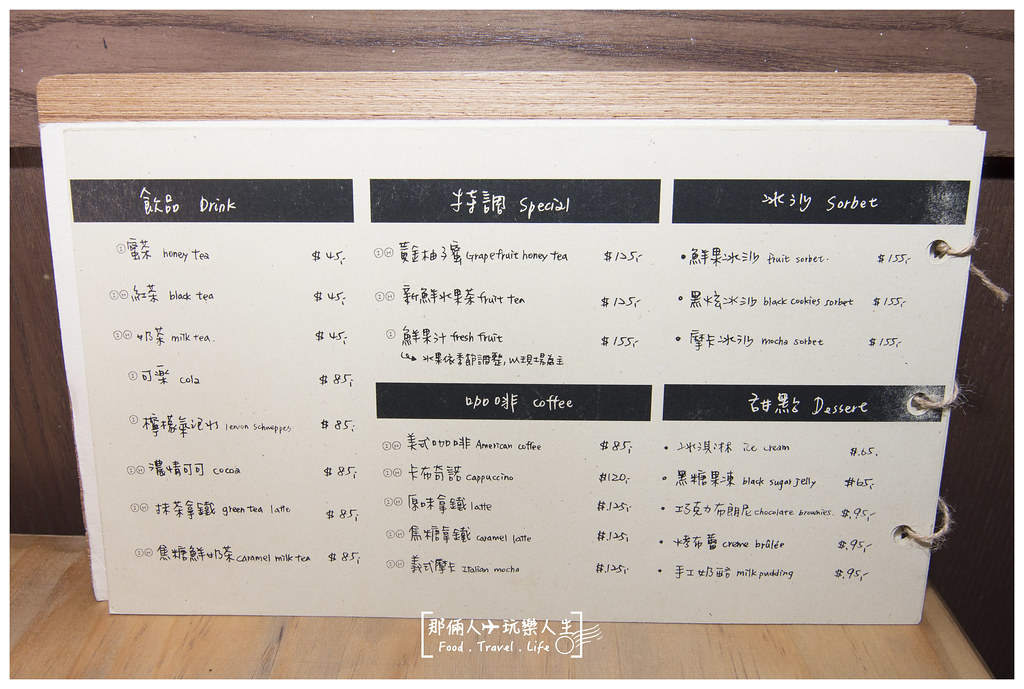 飲品 Drink
Ⓘ蜜茶 honey tea $45,-
ⒾⒽ紅茶 black tea $45,-
ⒾⒽ奶茶 milk tea. $45,-
Ⓘ可樂 cola $85,-
Ⓘ檸檬氣泡水 lemon Schweppes $85,-
ⒾⒽ濃情可可 cocoa $85,-
ⒾⒽ抹茶拿鐵 green tea latte $85,-
ⒾⒽ焦糖鮮奶茶 caramel milk tea $85,-
特調 Special
ⒾⒽ黃金柚子蜜 Grapefruit honey tea $125,-
ⒾⒽ新鮮水果茶 fruit tea $125,-
Ⓘ鮮果汁 fresh fruit $155,-
水果依季節調整,以現場為主
咖啡 coffee
ⒾⒽ美式咖啡 American coffee $85,-
ⒾⒽ卡布奇諾 cappuccino $120,-
ⒾⒽ原味拿鐵 latte $.125,-
ⒾⒽ焦糖拿鐵 caramel latte $.125,
ⒾⒽ義式摩卡 Italian mocha $.125,-
冰沙 Sorbet
•鮮果冰沙 fruit sorbet. $155,-
•黑炫冰沙 black cookies sorbet $155,-
•摩卡冰沙 mocha sorbet $155,-
甜點 Dessert
•冰淇淋 ice cream $.65.
•黑糖果凍 black sugar jelly $65,
•巧克力布朗尼 chocolate brownies. $.95,-
•烤布蕾 creme brûlée $.95,-
•手工奶酪 milk pudding $.95,-
那倆人✈玩樂人生
Food . Travel . Life